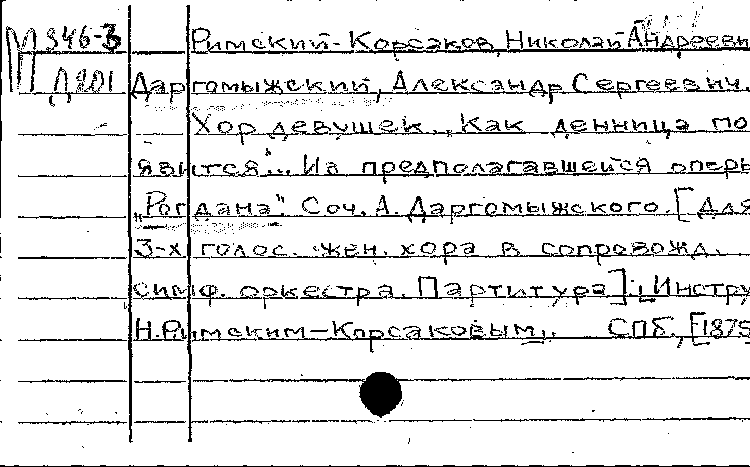 М 346-3 Римский-Корсаков, Николай Андреевич
Д 201 Даргомыжский, Александр Сергеевич.
Хор девушек „Как денница по
явится"... Из предполагавшейся оперы
„Рогдана". Соч. А. Даргомыжского. [Для
3-х голос. жен. хора в сопровожд.
симф. оркестра. Партитура]. Инстру
Н. Римским-Корсаковым. СПб., [1875